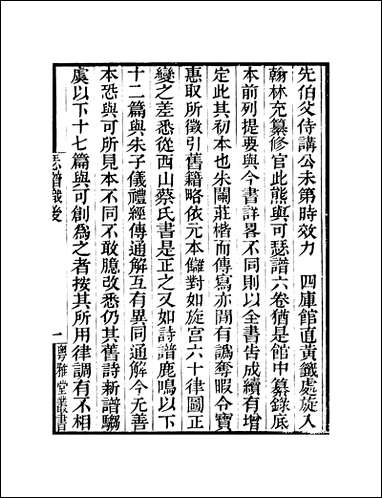 先伯父侍講公未第時效力　四庫館直黃籤處旋入
翰林充纂修官此熊與可瑟譜六卷猶是館中纂錄底
本前列提要與今書詳畧不同則以全書告成續有增
定此其初本也朱闌莊楷而傳寫亦閒有譌奪暇令寶
惠取所徵引舊籍略依元本讎對如旋宮六十律圖正
變之差悉從西山蔡氏書是正之又如詩譜鹿鳴以下
十二篇與朱子儀禮經傳通解互有異同通解今無善
本恐與可所見本不同不敢臆改悉仍其舊詩新譜騶
虞以下十七篇與可創爲之者按其所用律調有不相
瑟譜識後
一
粵雅堂叢書